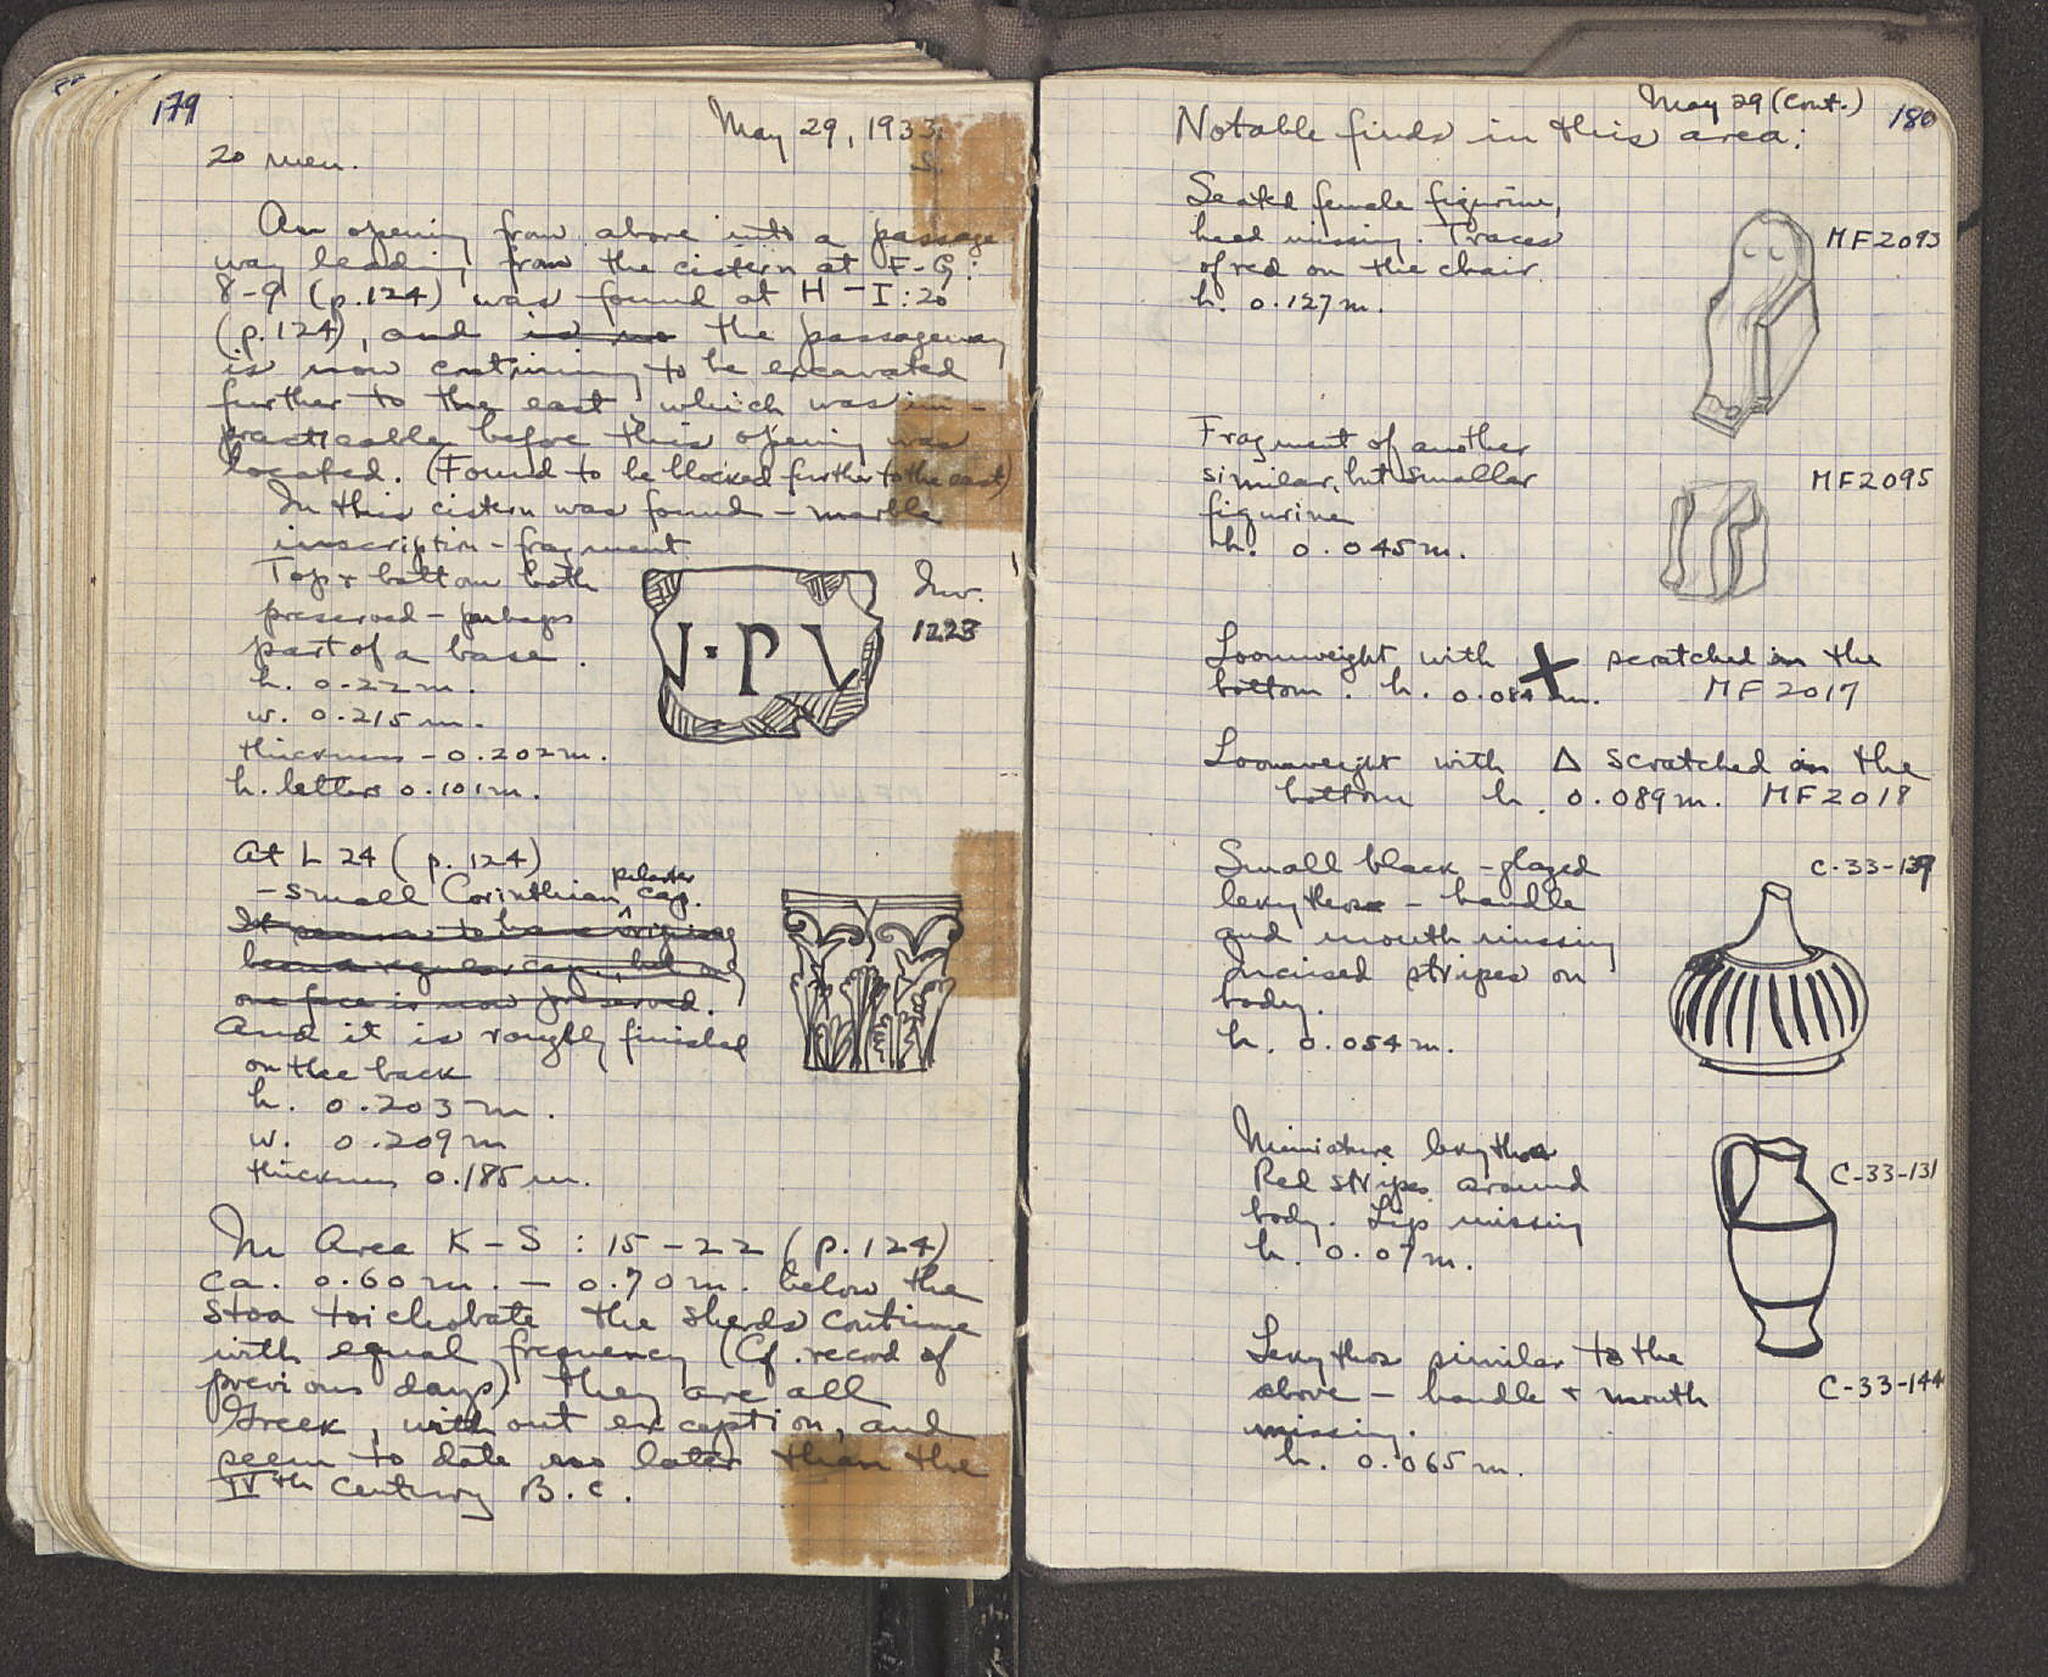 179
May 29, 1933.
S.
20 men.
An opening from above into a passage
way leading from the cistern at F-G:
8-9 (p.124) was found at H-I:20
(p.124), and is no the passageway
is now continuing to be excavated
further to the east, which was im-
practicable before this opening was
located. (Found to be blocked further to the east)
In this cistern was found - marble
inscription - fragment
Top + bottom both
preserved - perhaps
part of a base.
h. 0.22 m.
w. 0.215 m.
thickness - 0.202 m.
h. letters 0.101 m.
Inv.
1223
At L 24 (p. 124)
pilaster
- small Corinthian ^ cap.
It seems to have originally
been a regular cap., but only
one face is now preserved.
And it is roughly finished
on the back
h. 0.203 m.
w. 0.209 m
thickness 0.185 m.
In Area K-S : 15-22 (p.124)
ca. 0.60 m. - 0.70 m. below the
Stoa toichobate the sherds continue
with equal frequency (Cf. record of
previous days). They are all
Greek, without exception, and
seem to date no later than the
IVth Century B.C.
May 29 (cont.)
180
Notable finds in this area:
Seated female figurine,
head missing. Traces
of red on the chair
h. 0.127 m.
MF2093
Fragment of another
similar, but smaller
figurine
h. 0.045 m.
MF2095
Loomweight with X scratched in the
bottom. h. 0.084 m. MF2017
Loomweight with Δ scratched in the
bottom h. 0.089 m. MF2018
Small black-glazed
lekythos - handle
and mouth missing
Incised stripes on
body.
h. 0.054 m.
C-33-139
Miniature lekythos
Red stripes around
body. Lip missing
h. 0.07 m.
C-33-131
Lekythos similar to the
above - handle + mouth
missing.
h. 0.065 m.
C-33-144